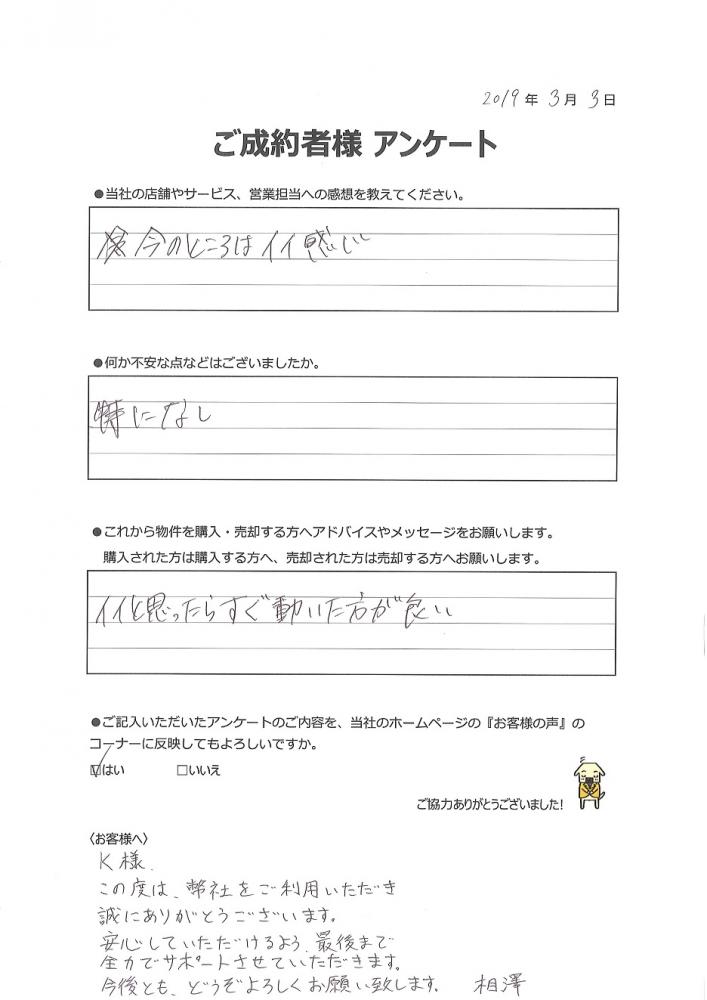 2019年 3月 3日
ご成約者様 アンケート
●当社の店舗やサービス、営業担当への感想を教えてください。
今のところはイイ感じ
●何か不安な点などはございましたか。
特になし
●これから物件を購入・売却する方へアドバイスやメッセージをお願いします。
購入された方は購入する方へ、売却された方は売却する方へお願いします。
イイと思ったらすぐ動いた方が良い
●ご記入いただいたアンケートのご内容を、当社のホームページの『お客様の声』の
コーナーに反映してもよろしいですか。
☑はい □いいえ
ご協力ありがとうございました!
〈お客様へ〉
K様、
この度は、弊社をご利用いただき
誠にありがとうございます。
安心していただけるよう、最後まで
全力でサポートさせていただきます。
今後とも、どうぞよろしくお願い致します。 相澤